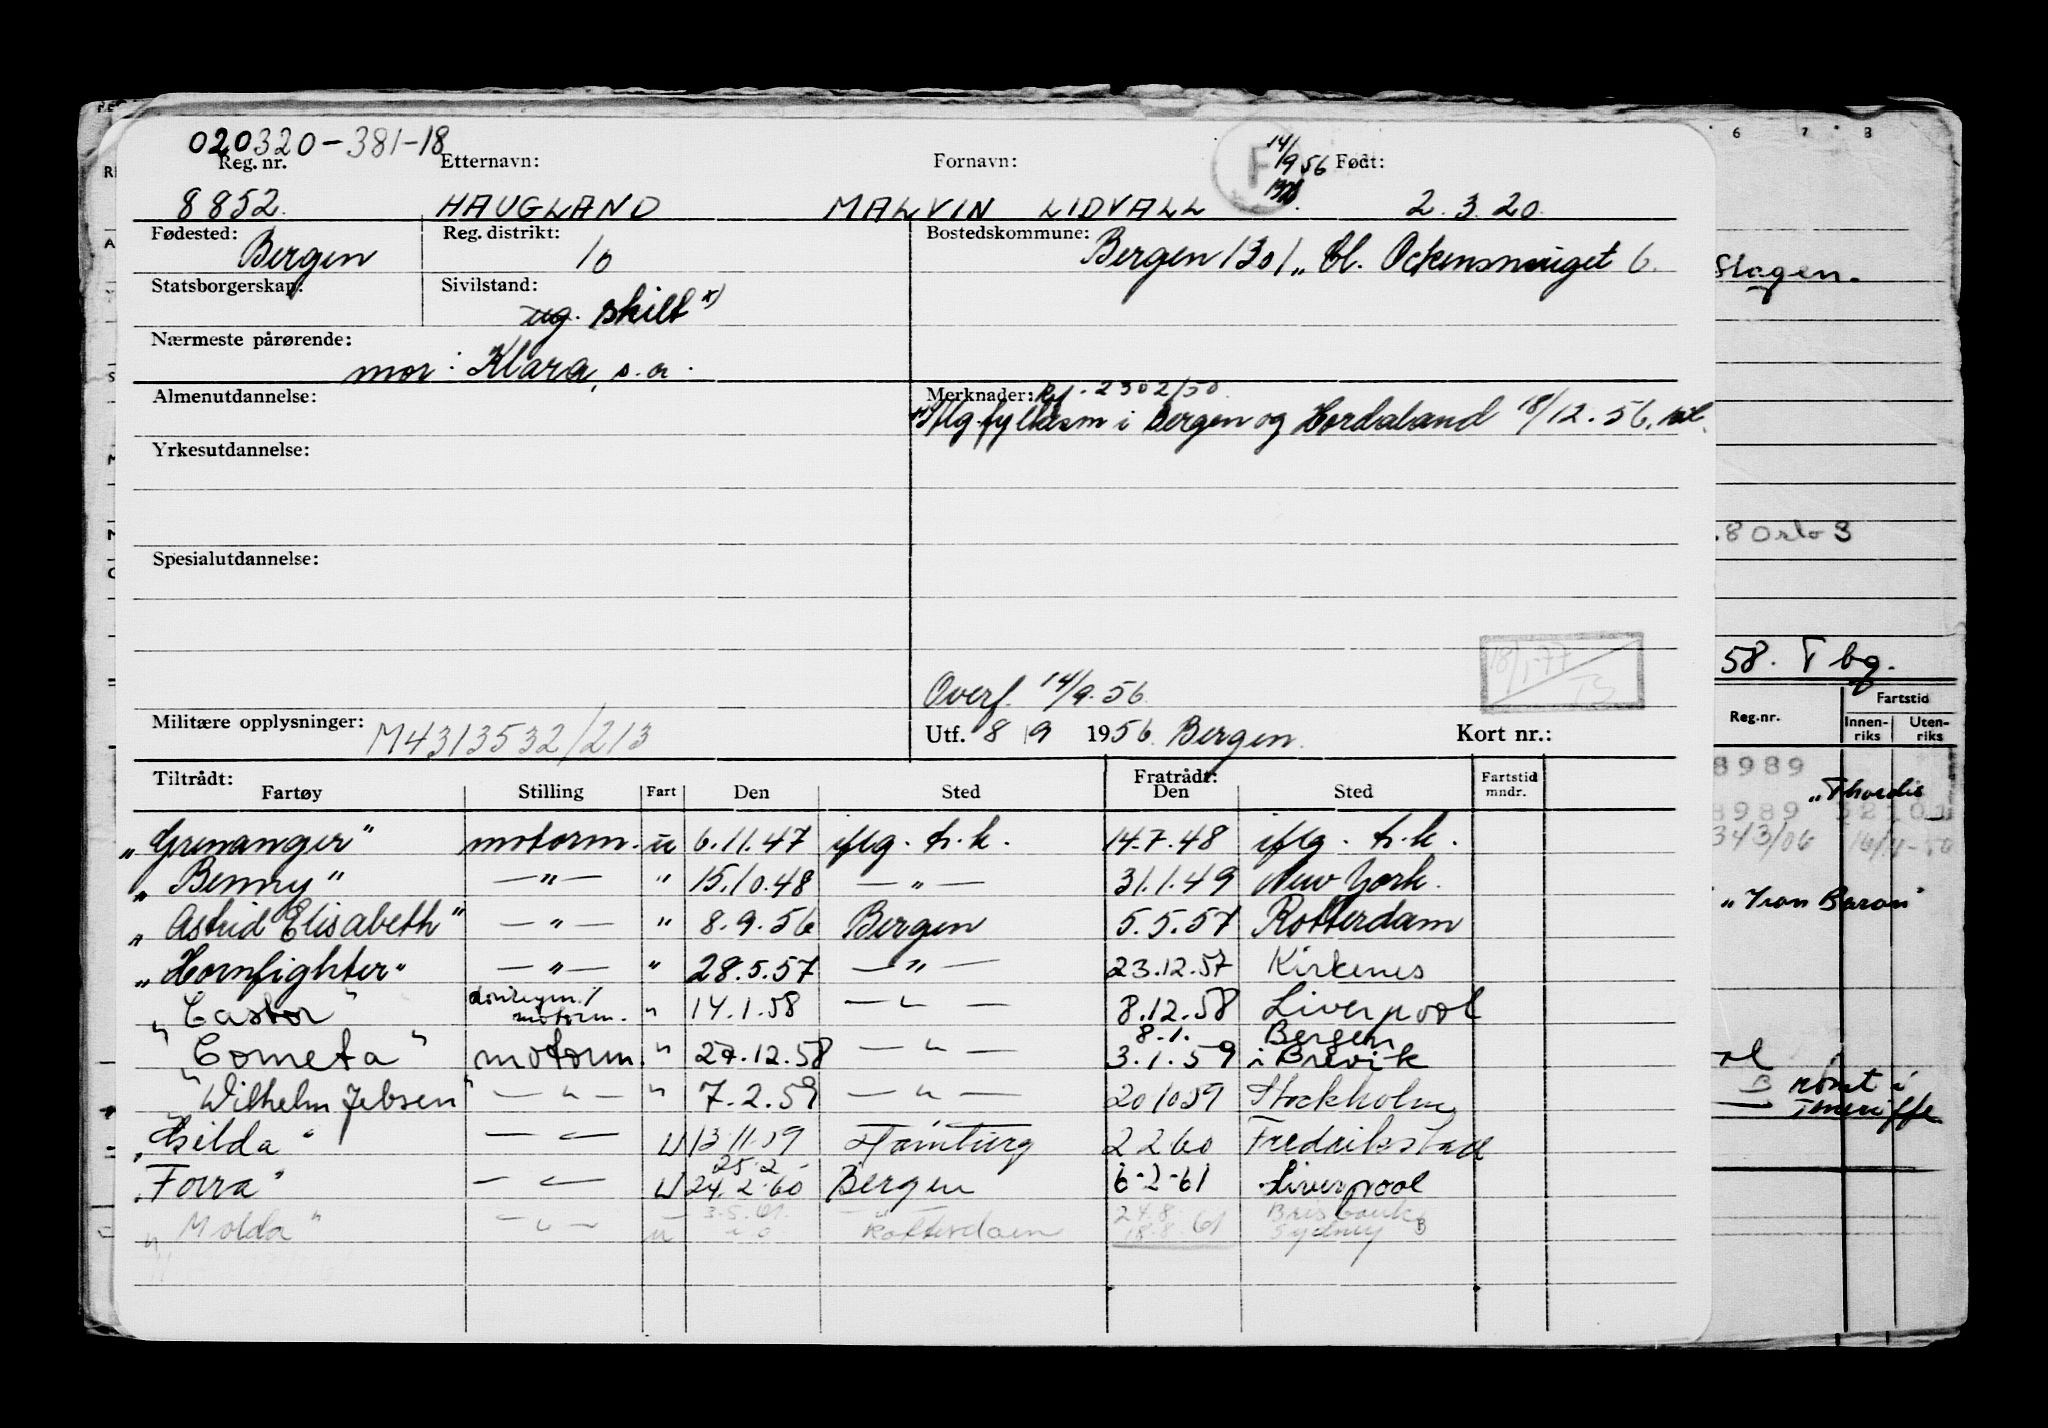 020320-381-18
Reg. nr. Etternavn: Fornavn: F 14/9 56 Født:
8852. HAUGLAND MALVIN LIDVALL 2.3.20.
Fødested: Bergen Reg. distrikt: 10 Bostedskommune: Bergen 1301,
Statsborgerskap: Sivilstand: ug. skilt x)
Nærmeste pårørende: mor: Klara, s.a.
Almenutdannelse: Merknader: 2302/50
i Bergen og Hordaland 18/12.56.
Yrkesutdannelse:
Spesialutdannelse:
Overf. 14/9.56.
18/1-77
Militære opplysninger: M4313532/213 Utf. 8/9 1956. Bergen. Kort nr.:
Tiltrådt: Fratrådt:
Fartøy Stilling Fart Den Sted Den Sted Fartstid mndr.
"Grenanger" motorm. u 6.11.47 iflg. h.k. 14.7.48 iflg. h.k.
"Benny" —"— " 15.10.48 —"— 31.1.49 New York.
"Astrid Elisabeth" —"— " 8.9.56 Bergen 5.5.57 Rotterdam
"Hornfighter" —"— " 28.5.57 —"— 23.12.57 Kirkenes
"Castor" donkeym./motorm. " 14.1.58 —"— 8.12.58 Liverpool
8.1. Bergen
"Cometa" motorm. " 27.12.58 —"— 3.1.59 i Brevik
"Wilhelm Jebsen" —"— " 7.2.59 —"— 20 10 59 Stockholm
"Hilda" —"— U 13 11 59 Hamburg 2 2 60 Fredrikstad
25.2
"Forra" —"— U 24.2.60 Bergen 6-2-61 Liverpool
3.5.61. 24.8 Brisbane
"Molda" —"— u Rotterdam 18.8.61 Sydney B
6 7 8
Slagen.
.8 Oslo 3
58. Tbg.
Fartstid
Reg.nr. Innen-riks Uten-riks
8989
"Thordis
8989
343/06
"Iron Baron"
ol
B rømt i
Teneriffe